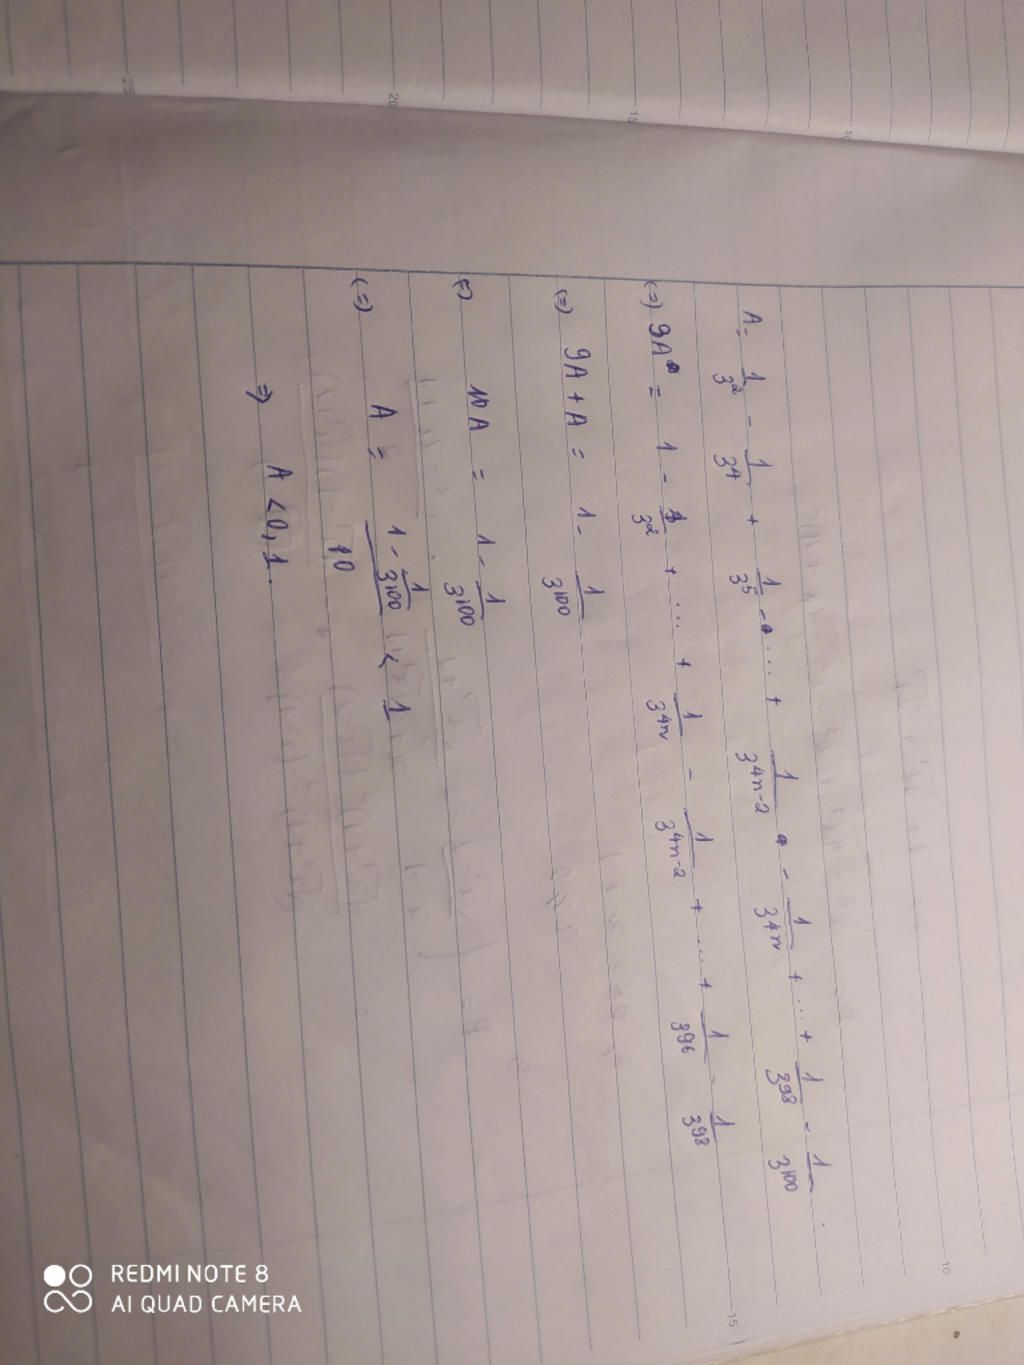 A = 1/3² - 1/3⁴ + 1/3⁵ - ... + 1/3⁴ⁿ⁻² - 1/3⁴ⁿ + ... + 1/3⁹⁸ - 1/3¹⁰⁰
(=) 9A = 1 - 1/3² + ... + 1/3⁴ⁿ - 1/3⁴ⁿ⁻² + ... + 1/3⁹⁶ - 1/3⁹⁸
(=) 9A + A = 1 - 1/3¹⁰⁰
(=) 10A = 1 - 1/3¹⁰⁰
(=) A = (1 - 1/3¹⁰⁰)/10 < 1
=> A < 0,1.
25
20
15
10
10
15
REDMI NOTE 8
AI QUAD CAMERA